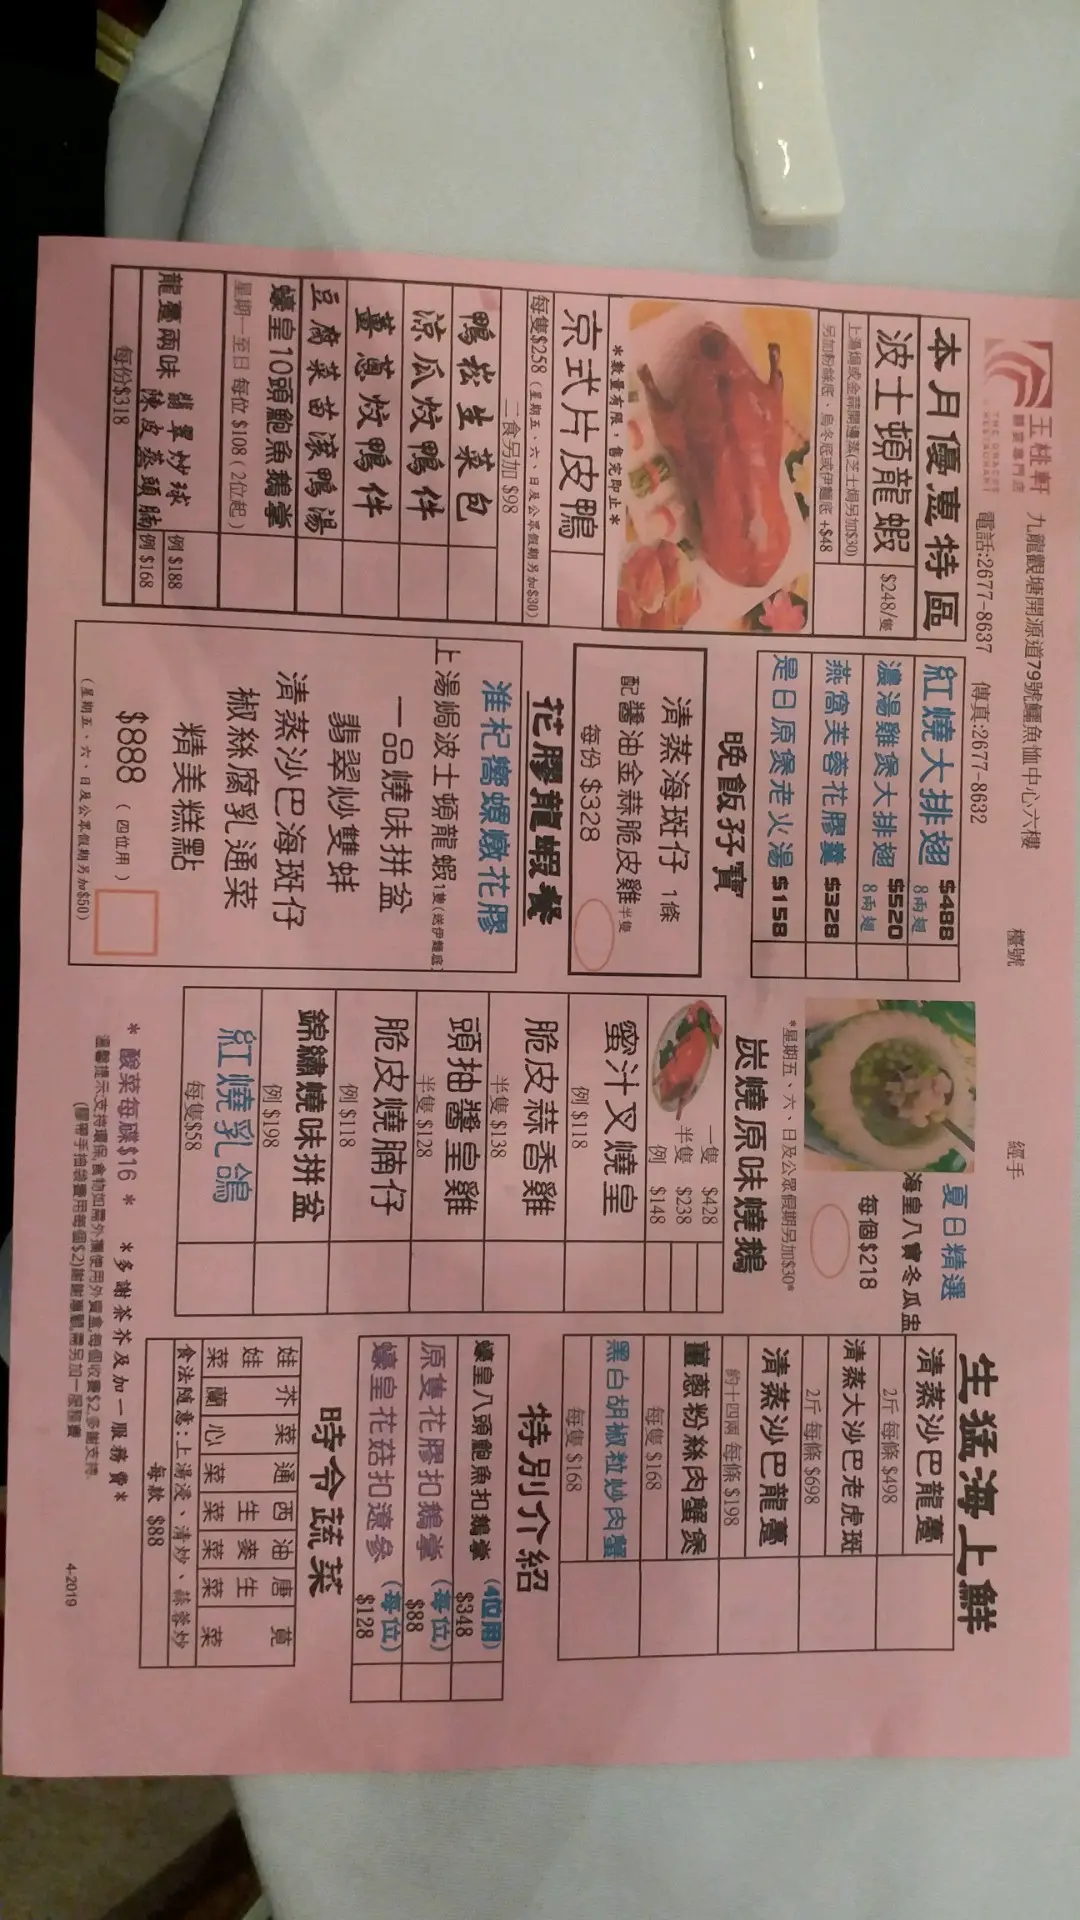 玉桃軒
THE GRACE RESTAURANT
九龍觀塘開源道79號鱷魚恤中心六樓
電話:2677-8637 傳真:2677-8632
檯號
經手
本月優惠特區
波士頓龍蝦 $248/隻
上湯焗或金蒜開邊蒸(芝士焗另加$30)
另加粉絲底、烏冬底或伊麵底 +$48
*數量有限，售完即止*
京式片皮鴨
每隻$258 (星期五、六、日及公眾假期另加$30)
二食另加 $98
鴨崧生菜包
涼瓜炆鴨件
薑蔥炆鴨件
豆腐菜苗滾鴨湯
蠔皇10頭鮑魚鵝掌
星期一至日 每位 $108 (2位起)
龍躉兩味 翡翠炒球 例 $188
陳皮蒸頭腩 例 $168
每份$318
紅燒大排翅 $488
8兩翅
濃湯雞煲大排翅 $520
8兩翅
燕窩芙蓉花膠羹 $328
是日原煲老火湯 $158
晚飯孖寶
清蒸海斑仔 1條
配醬油金蒜脆皮雞半隻
每份 $328
花膠龍蝦餐
淮杞嚮螺燉花膠
上湯焗波士頓龍蝦1隻(送伊麵底)
一品燒味拼盆
翡翠炒雙蚌
清蒸沙巴海斑仔
椒絲腐乳通菜
精美糕點
$888 (四位用)
(星期五、六、日及公眾假期另加$50)
夏日精選
海皇八寶冬瓜盅
每個$218
*星期五、六、日及公眾假期另加$30*
炭燒原味燒鵝
一隻 $428
半隻 $238
例 $148
蜜汁叉燒皇
例 $118
脆皮蒜香雞
半隻 $138
頭抽醬皇雞
半隻 $128
脆皮燒腩仔
例 $118
錦繡燒味拼盆
例 $198
紅燒乳鴿
每隻$58
生猛海上鮮
清蒸沙巴龍躉
2斤 每條 $498
清蒸大沙巴老虎斑
2斤 每條 $698
清蒸沙巴龍躉
約十四兩 每條 $198
薑蔥粉絲肉蟹煲
每隻 $168
黑白胡椒粒炒肉蟹
每隻 $168
特別介紹
蠔皇八頭鮑魚扣鵝掌 (4位用) $348
原隻花膠扣鵝掌 (每位) $88
蠔皇花菇扣遼參 (每位) $128
時令蔬菜
娃娃菜
芥蘭
菜心
通菜
西生菜
油麥菜
唐生菜
莧菜
食法隨意:上湯浸、清炒、蒜蓉炒
每款 $88
* 酸菜每碟$16 * *多謝茶芥及加一服務費*
溫馨提示支持環保,食物如需外攜使用外賣盒,每個收費$2,多謝支持.
(膠帶手抽袋費用每個$2)謝謝惠顧,需另加一服務費
4-2019